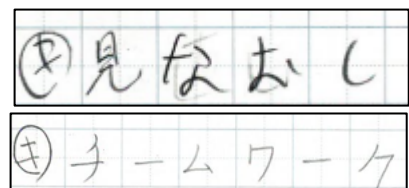 ㋖見なおし
㋖チームワーク